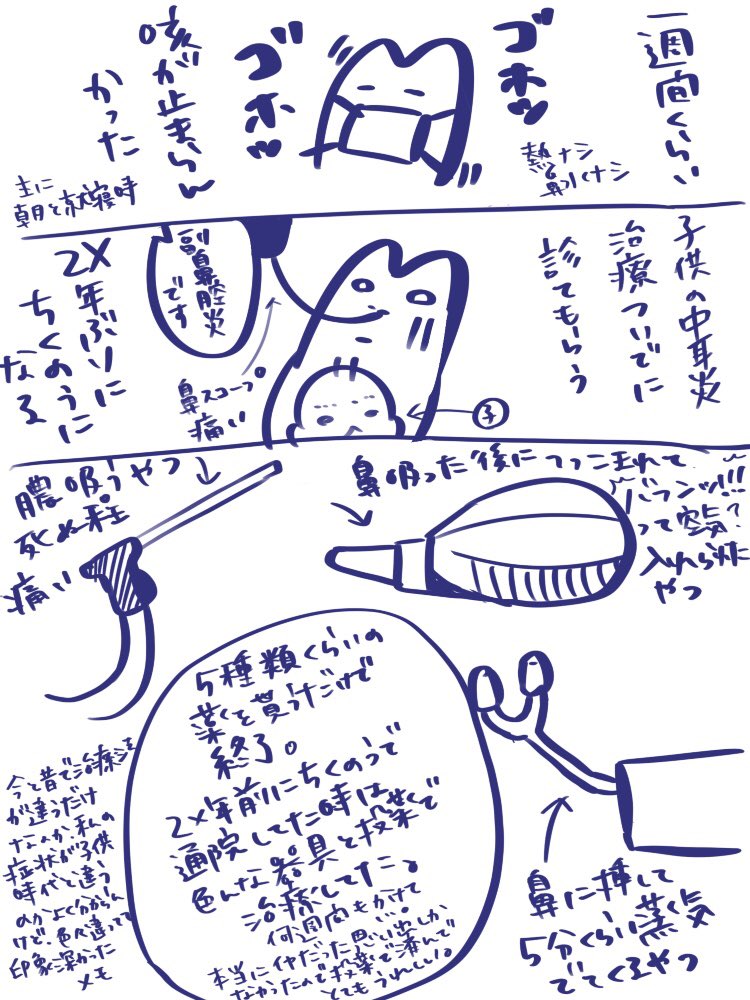 一週間くらい
ゴホッ
ゴホッ
咳が止まらん
かった
熱ナシ
鼻水ナシ
主に
朝と就寝時
子供の中耳炎
治療ついでに
診てもらう
副鼻腔炎
です
2X年ぶりに
ちくのうに
なる
鼻スコープ
痛い
子
膿吸うやつ
死ぬ程
痛い
鼻吸った後につっこまれて
バフンッ!!!
って空気?
入れられた
やつ
5種類くらいの
薬を貰うだけで
終了。
2X年前にちくのうで
通院してた時は
色んな器具と投薬で
治療してた。
何週間もかけて
本当にイヤだった思い出しか
なかったので投薬で済んで
とてもうれしい。
鼻に挿して
5分くらい蒸気
でてくるやつ
今と昔で治療法
が違うだけ
なんか私の
症状が子供
時代と違う
のかよく分からん
けど、色々違ってて
印象深かった
メモ